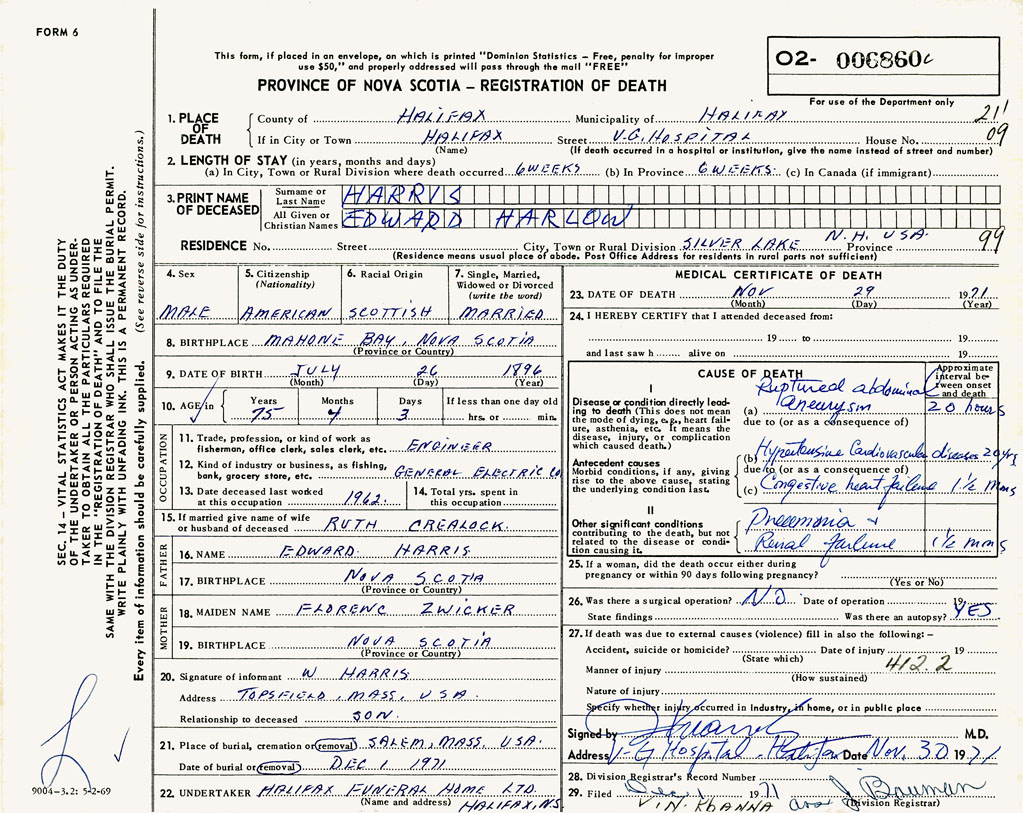 FORM 6
This form, if placed in an envelope, on which is printed "Dominion Statistics – Free, penalty for improper
use $50," and properly addressed will pass through the mail "FREE"
O2- 006860c
PROVINCE OF NOVA SCOTIA – REGISTRATION OF DEATH
For use of the Department only
1. PLACE OF DEATH
County of HALIFAX Municipality of HALIFAX 211
If in City or Town HALIFAX Street V.G. HOSPITAL House No. 09
(Name) (If death occurred in a hospital or institution, give the name instead of street and number)
2. LENGTH OF STAY (in years, months and days)
(a) In City, Town or Rural Division where death occurred 6 WEEKS (b) In Province 6 WEEKS. (c) In Canada (if immigrant)
3. PRINT NAME OF DECEASED
Surname or Last Name HARRIS
All Given or Christian Names EDWARD HARLOW
RESIDENCE No. Street City, Town or Rural Division SILVER LAKE N.H. USA. Province 99
(Residence means usual place of abode. Post Office Address for residents in rural parts not sufficient)
4. Sex
MALE
5. Citizenship
(Nationality)
AMERICAN
6. Racial Origin
SCOTTISH
7. Single, Married,
Widowed or Divorced
(write the word)
MARRIED
8. BIRTHPLACE MAHONE BAY, NOVA SCOTIA
(Province or Country)
9. DATE OF BIRTH JULY 26 1896
(Month) (Day) (Year)
10. AGE in Years Months Days If less than one day old
75 4 3 hrs. or min.
OCCUPATION
11. Trade, profession, or kind of work as
fisherman, office clerk, sales clerk, etc. ENGINEER
12. Kind of industry or business, as fishing,
bank, grocery store, etc. GENERAL ELECTRIC CO
13. Date deceased last worked
at this occupation 1962.
14. Total yrs. spent in
this occupation
15. If married give name of wife
or husband of deceased RUTH CREALOCK.
FATHER
16. NAME EDWARD HARRIS
17. BIRTHPLACE NOVA SCOTIA
(Province or Country)
MOTHER
18. MAIDEN NAME FLORENC ZWICKER
19. BIRTHPLACE NOVA SCOTIA
(Province or Country)
20. Signature of informant W HARRIS
Address TOPSFIELD, MASS, USA.
Relationship to deceased SON.
21. Place of burial, cremation or removal. SALEM, MASS, USA.
Date of burial or removal DEC 1 1971
22. UNDERTAKER HALIFAX FUNERAL HOME LTD.
(Name and address) HALIFAX, N.S.
MEDICAL CERTIFICATE OF DEATH
23. DATE OF DEATH NOV 29 1971
(Month) (Day) (Year)
24. I HEREBY CERTIFY that I attended deceased from:
19 to 19
and last saw h alive on 19
CAUSE OF DEATH
Approximate
interval be-
tween onset
and death
I
Disease or condition directly lead-
ing to death (This does not mean
the mode of dying, e.g., heart fail-
ure, asthenia, etc. It means the
disease, injury, or complication
which caused death.)
(a) Ruptured abdominal aneurysm 20 hours
due to (or as a consequence of)
Antecedent causes
Morbid conditions, if any, giving
rise to the above cause, stating
the underlying condition last.
(b) Hypertensive Cardiovascular diseases 20 yrs
due to (or as a consequence of)
(c) Congestive heart failure 1½ mns
II
Other significant conditions
contributing to the death, but not
related to the disease or condi-
tion causing it.
Pneumonia +
Renal failure 1½ mns
25. If a woman, did the death occur either during
pregnancy or within 90 days following pregnancy?
(Yes or No)
26. Was there a surgical operation? NO Date of operation 19
State findings Was there an autopsy? YES
27. If death was due to external causes (violence) fill in also the following: –
Accident, suicide or homicide? Date of injury 19
(State which) 412.2
Manner of injury
(How sustained)
Nature of injury
Specify whether injury occurred in Industry, in home, or in public place
Signed by M.D.
Address V-G Hospital - Halifax Date Nov. 30 1971
28. Division Registrar's Record Number
29. Filed Dec. 1 1971 J Bauman
V.I.N. KHANNA (Division Registrar)
SEC. 14 – VITAL STATISTICS ACT MAKES IT THE DUTY
OF THE UNDERTAKER OR PERSON ACTING AS UNDER-
TAKER TO OBTAIN ALL THE PARTICULARS REQUIRED
IN THE "REGISTRATION OF DEATH" AND TO FILE THE
SAME WITH THE DIVISION REGISTRAR WHO SHALL ISSUE THE BURIAL PERMIT.
WRITE PLAINLY WITH UNFADING INK. THIS IS A PERMANENT RECORD.
Every item of information should be carefully supplied. (See reverse side for instructions.)
9004-3.2: 5-2-69